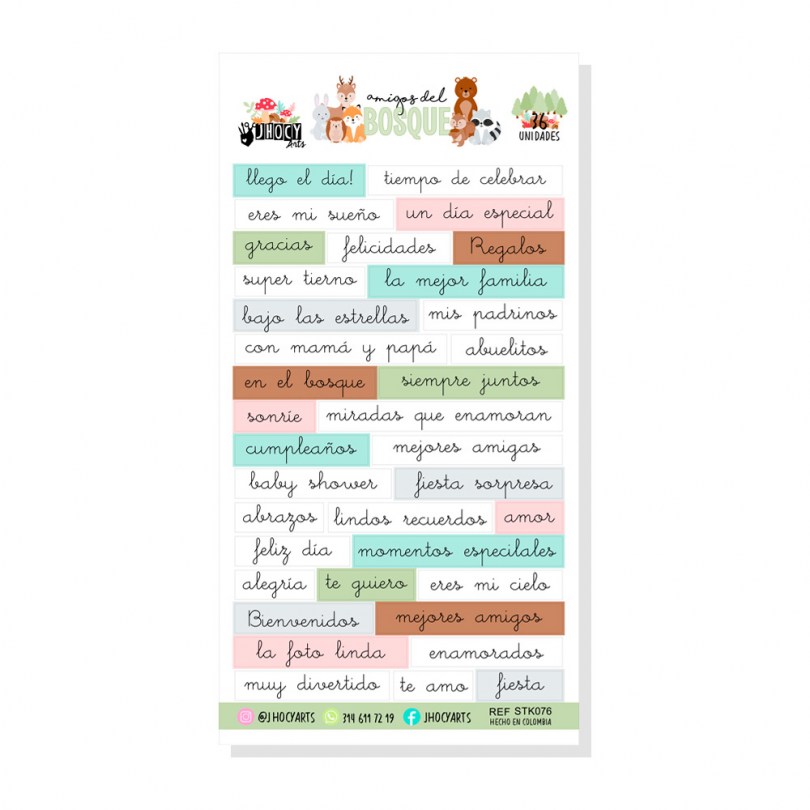 JHOCY
Arts
amigos del
BOSQUE
36
UNIDADES
llego el día! tiempo de celebrar
eres mi sueño un día especial
gracias felicidades Regalos
super tierno la mejor familia
bajo las estrellas mis padrinos
con mamá y papá abuelitos
en el bosque siempre juntos
sonríe miradas que enamoran
cumpleaños mejores amigas
baby shower fiesta sorpresa
abrazos lindos recuerdos amor
feliz día momentos especilales
alegría te quiero eres mi cielo
Bienvenidos mejores amigos
la foto linda enamorados
muy divertido te amo fiesta
@JHOCYARTS 314 611 72 19 JHOCYARTS REF STK076
HECHO EN COLOMBIA